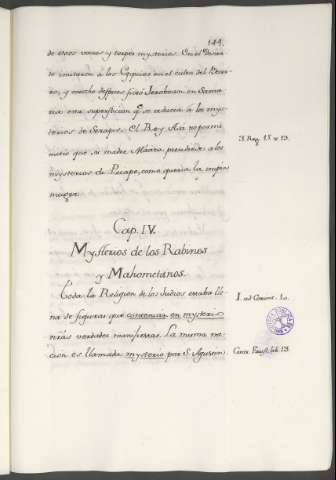 144.
de estos vanos y torpes mysterios. En el Desier-
to imitaron á los Egypcios en el cultto del Becer-
ro, y mucho despues fixó Jeroboam en Sama-
ria esta supersticion qe. se reducia á los mys-
terios de Serapis. El Rey Asa no permi-
mitió que su madre Maaca presidiera á los
mysterios de Priapo, como queria la impia
muger.
3. Reg. 15. v. 13.
Cap. IV.
Mysterios de los Rabinos
y Mahometanos.
Toda la Religion de los Judios estaba lle-
na de figuras que contenian en mysterio
mas verdades manifiestas. La misma na-
cion es llamada mysterio por S. Agustin
I. ad Corint. 10.
Contr. Faust. lib. 13.